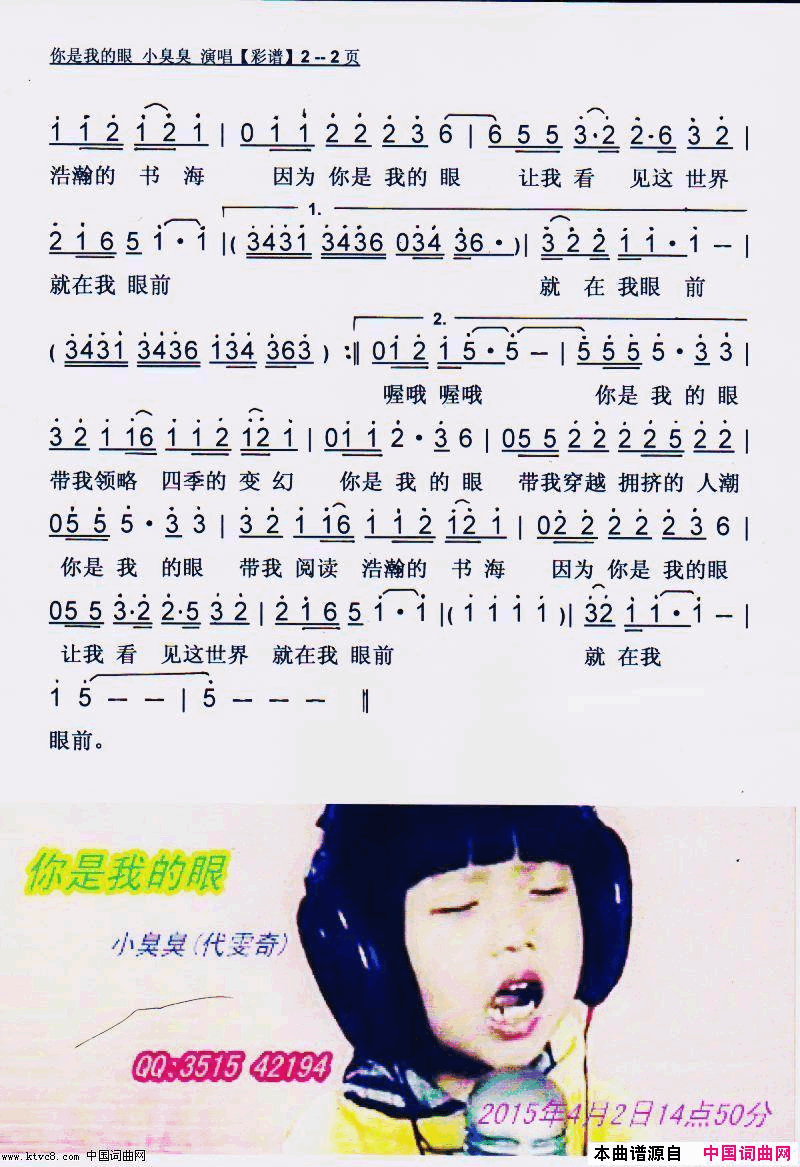 你是我的眼 小臭臭 演唱【彩谱】2 -- 2 页
1 1 2 1 2 1 | 0 1 1 2 2 2 3 6 | 6 5 5 3·2 2·6 3 2 |
浩瀚的 书 海 因为 你是 我的 眼 让我 看 见这 世界
1.
2 1 6 5 1·1 |( 3431 3436 034 36· )| 3 2 2 1 1·1 1 – |
就在我 眼前 就 在 我眼 前
2.
( 3431 3436 134 363 ) :‖ 0 1 2 1 5·5 – | 5 5 5 5·3 3 |
喔哦 喔哦 你是 我 的 眼
3 2 1 16 1 1 2 12 1 | 0 1 1 2·3 6 | 0 5 5 2 2 2 2 5 2 2 |
带我领略 四季的 变 幻 你是 我 的 眼 带我穿越 拥挤的 人潮
0 5 5 5·3 3 | 3 2 1 16 1 1 2 12 1 | 0 2 2 2 2 2 3 6 |
你是 我 的眼 带我 阅读 浩瀚的 书 海 因为 你是 我的眼
0 5 5 3·2 2·5 3 2 | 2 1 6 5 1·1 |( 1 1 1 1 )| 32 1 1·1 |
让我 看 见这世界 就在我 眼前 就 在我
1 5 – – | 5 – – – ‖
眼前。
你是我的眼
小臭臭(代雯奇)
QQ:3515 42194
2015年4月2日14点50分
www.ktvc8.com 中国词曲网
本曲谱源自 中国词曲网